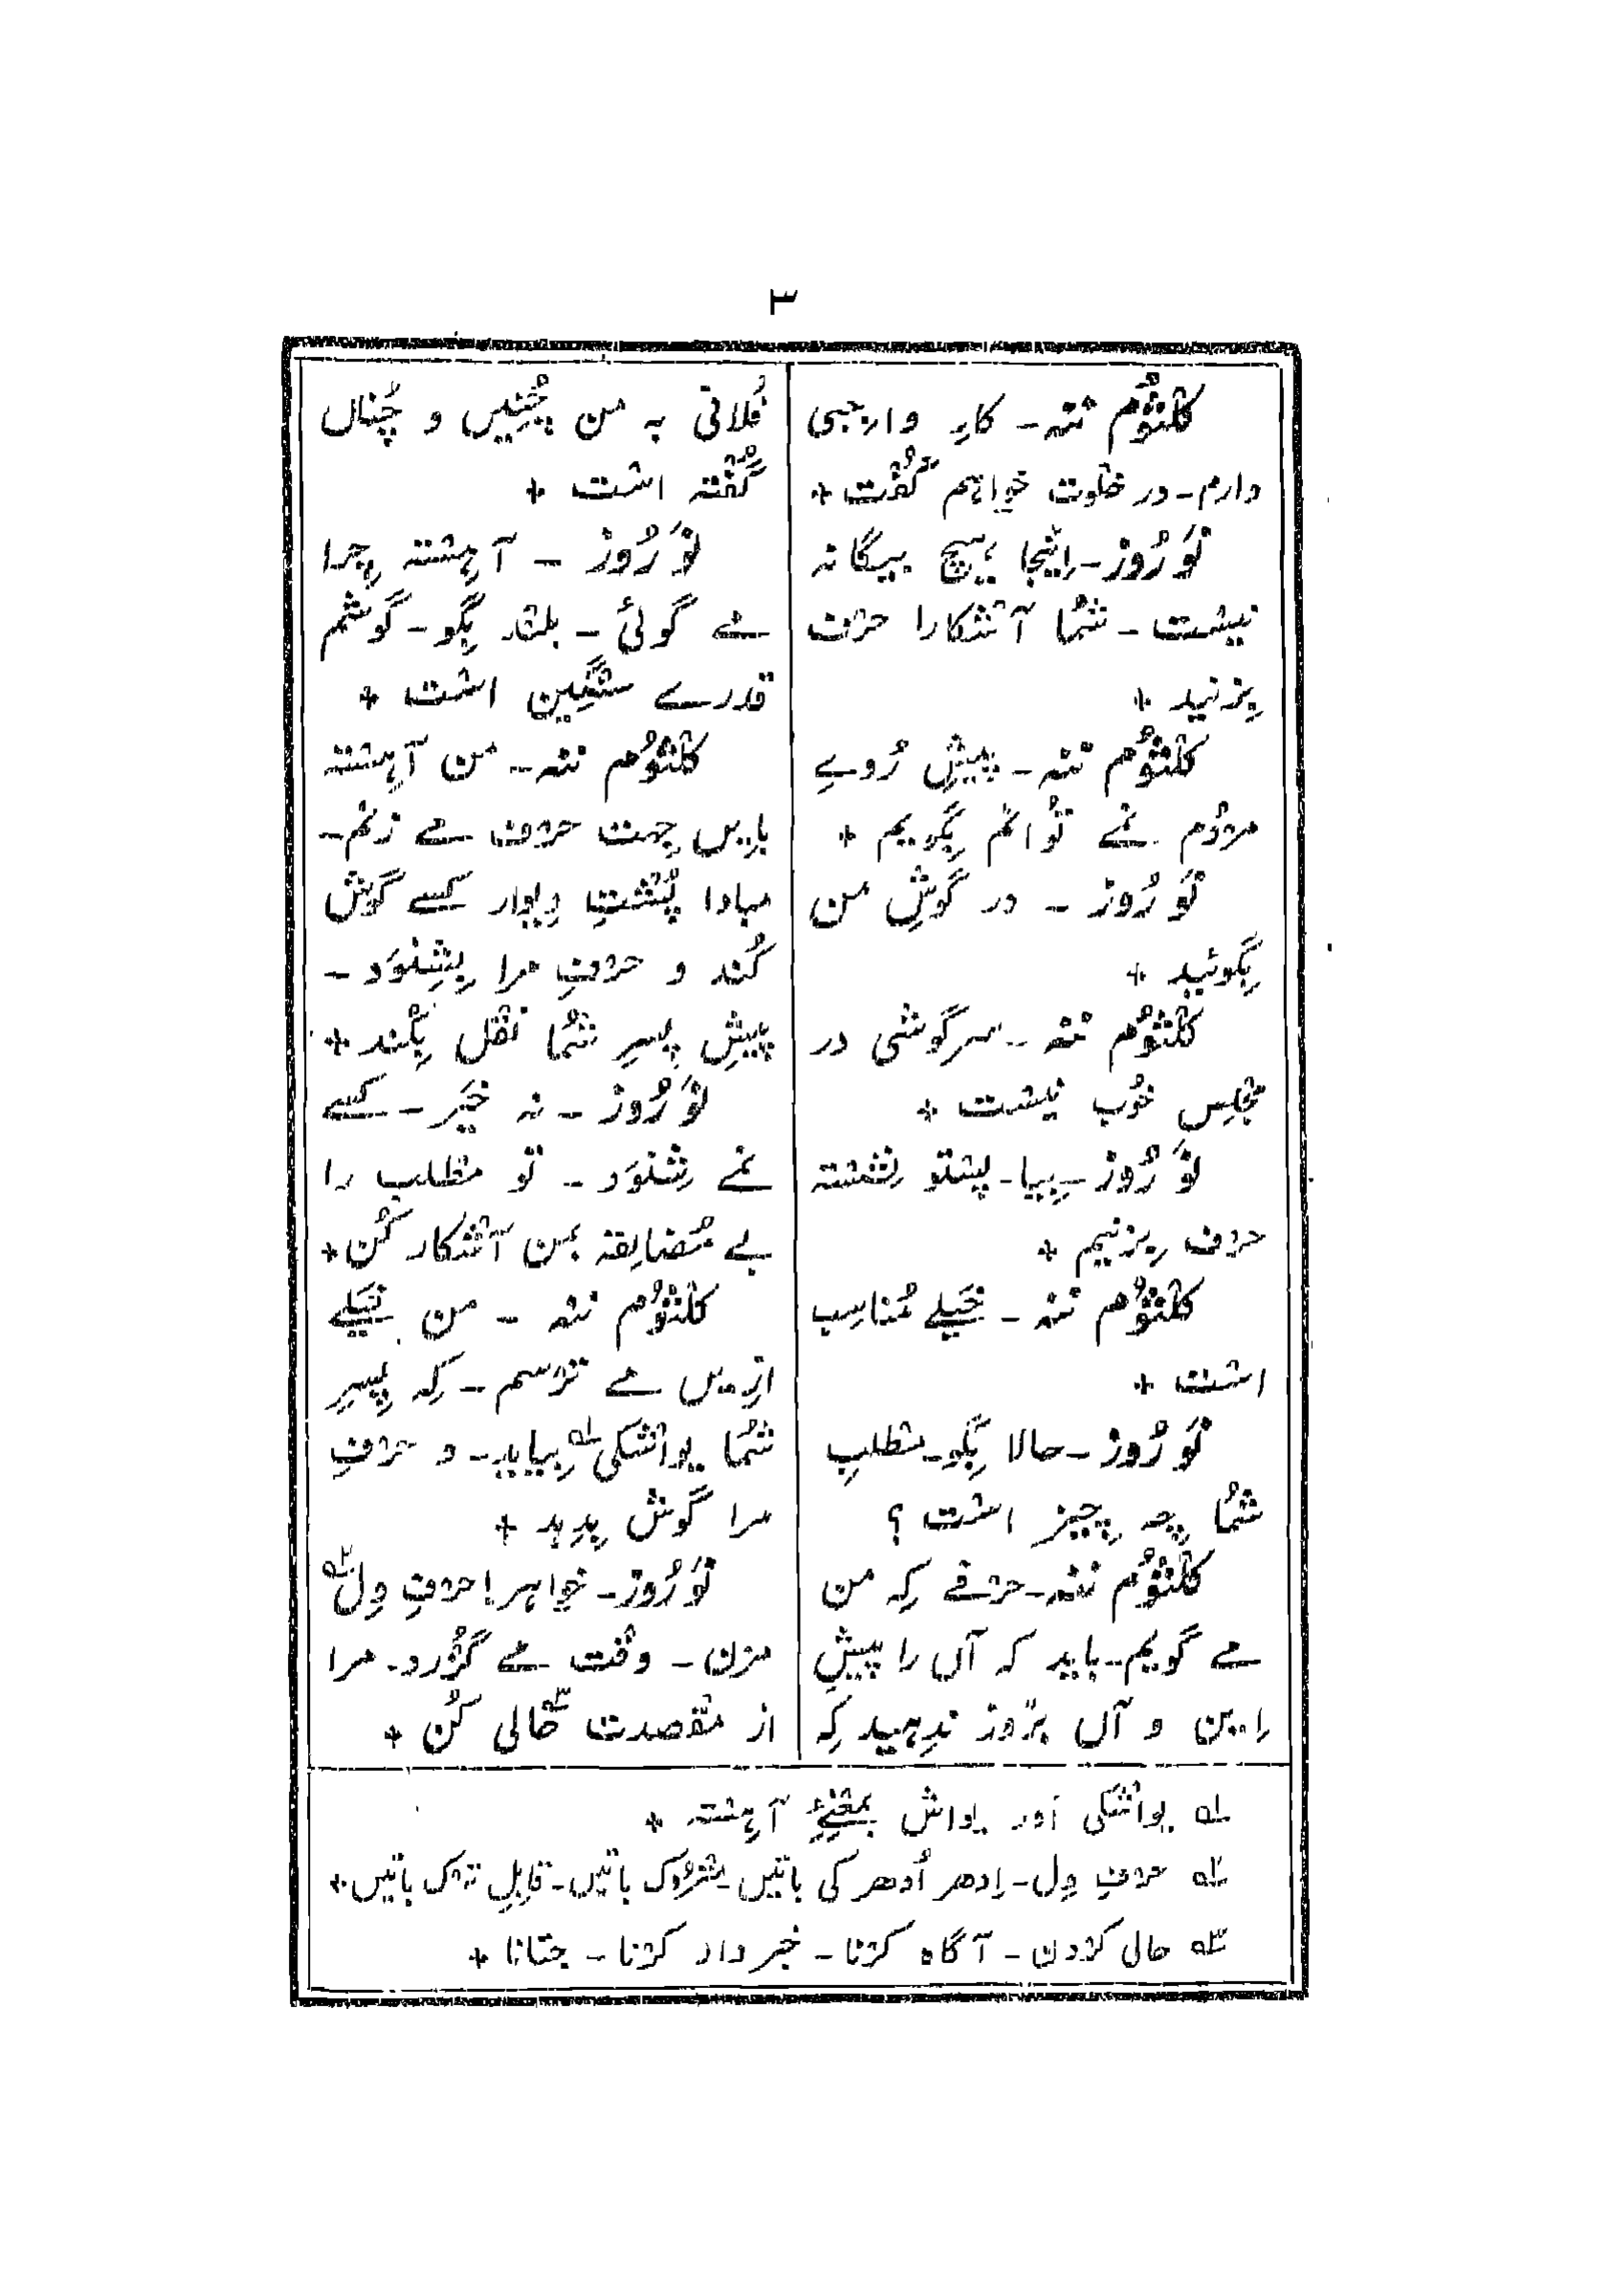 ۳
کلثُوُم ننہ - کارِ واجبی
دارم - در خلوت خواہم گُفت +
نَو رُوز - اِینجا ہیچ بیگانہ
نیست - شُما آشکارا حرف
بِزنید +
کلثُوُم ننہ - پیشِ رُوےِ
مردُم نمے تُوانم بِگویم +
نَو رُوز - در گوشِ من
بِگوئید +
کلثُوُم ننہ - سرگوشی در
مجلِس خُوب نیست +
نَو رُوز - بِیا - پہلو نِشستہ
حرف بِزنیم +
کلثُوُم ننہ - خَیلے مُناسِب
است +
نَو رُوز - حالا بِگو - مطلبِ
شُما چِہ چِیز است ؟
کلثُوُم ننہ - حرفے کِہ من
مے گویم - باید کہ آں را پیشِ
اِین و آں بُروز ندِہید کِہ
فُلانی بہ من چُنِیں و چُناں
گُفتہ است +
نَو رُوز - آہِستہ چِرا
مے گوئی - بلند بِگو - گوشم
قدرے سنگِین است +
کلثُوُم ننہ - من آہِستہ
بایں جِہت حرف مے زنم -
مبادا پُشتِ دِیوار کسے گوش
کُند و حرفِ مرا بِشِنوَد -
پیشِ پِسرِ شُما نقل بِکُند +
نَو رُوز - نہ خَیر - کسے
نمے شِنوَد - تو مطلب را
بے مُضایقہ بمن آشکار کُن +
کلثُوُم ننہ - من خَیلے
ازیں مے ترسم - کِہ پِسرِ
شُما یواشکی ؎۱ بِیاید - و حرفِ
مرا گوش بِدِہد +
نَو رُوز - خواہر ! حرفِ وِل ؎۲
مزن - وقت مے گُزرد - مرا
از مقصدت حالی ؎۳ کُن +
؎۱ یواشکی اَور یواش بمعنیٔ آہِستہ +
؎۲ حرفِ وِل - اِدھر اُدھر کی باتیں - متروک باتیں - قابِلِ ترک باتیں +
؎۳ حالی کردن - آگاہ کرنا - خبردار کرنا - جتانا +